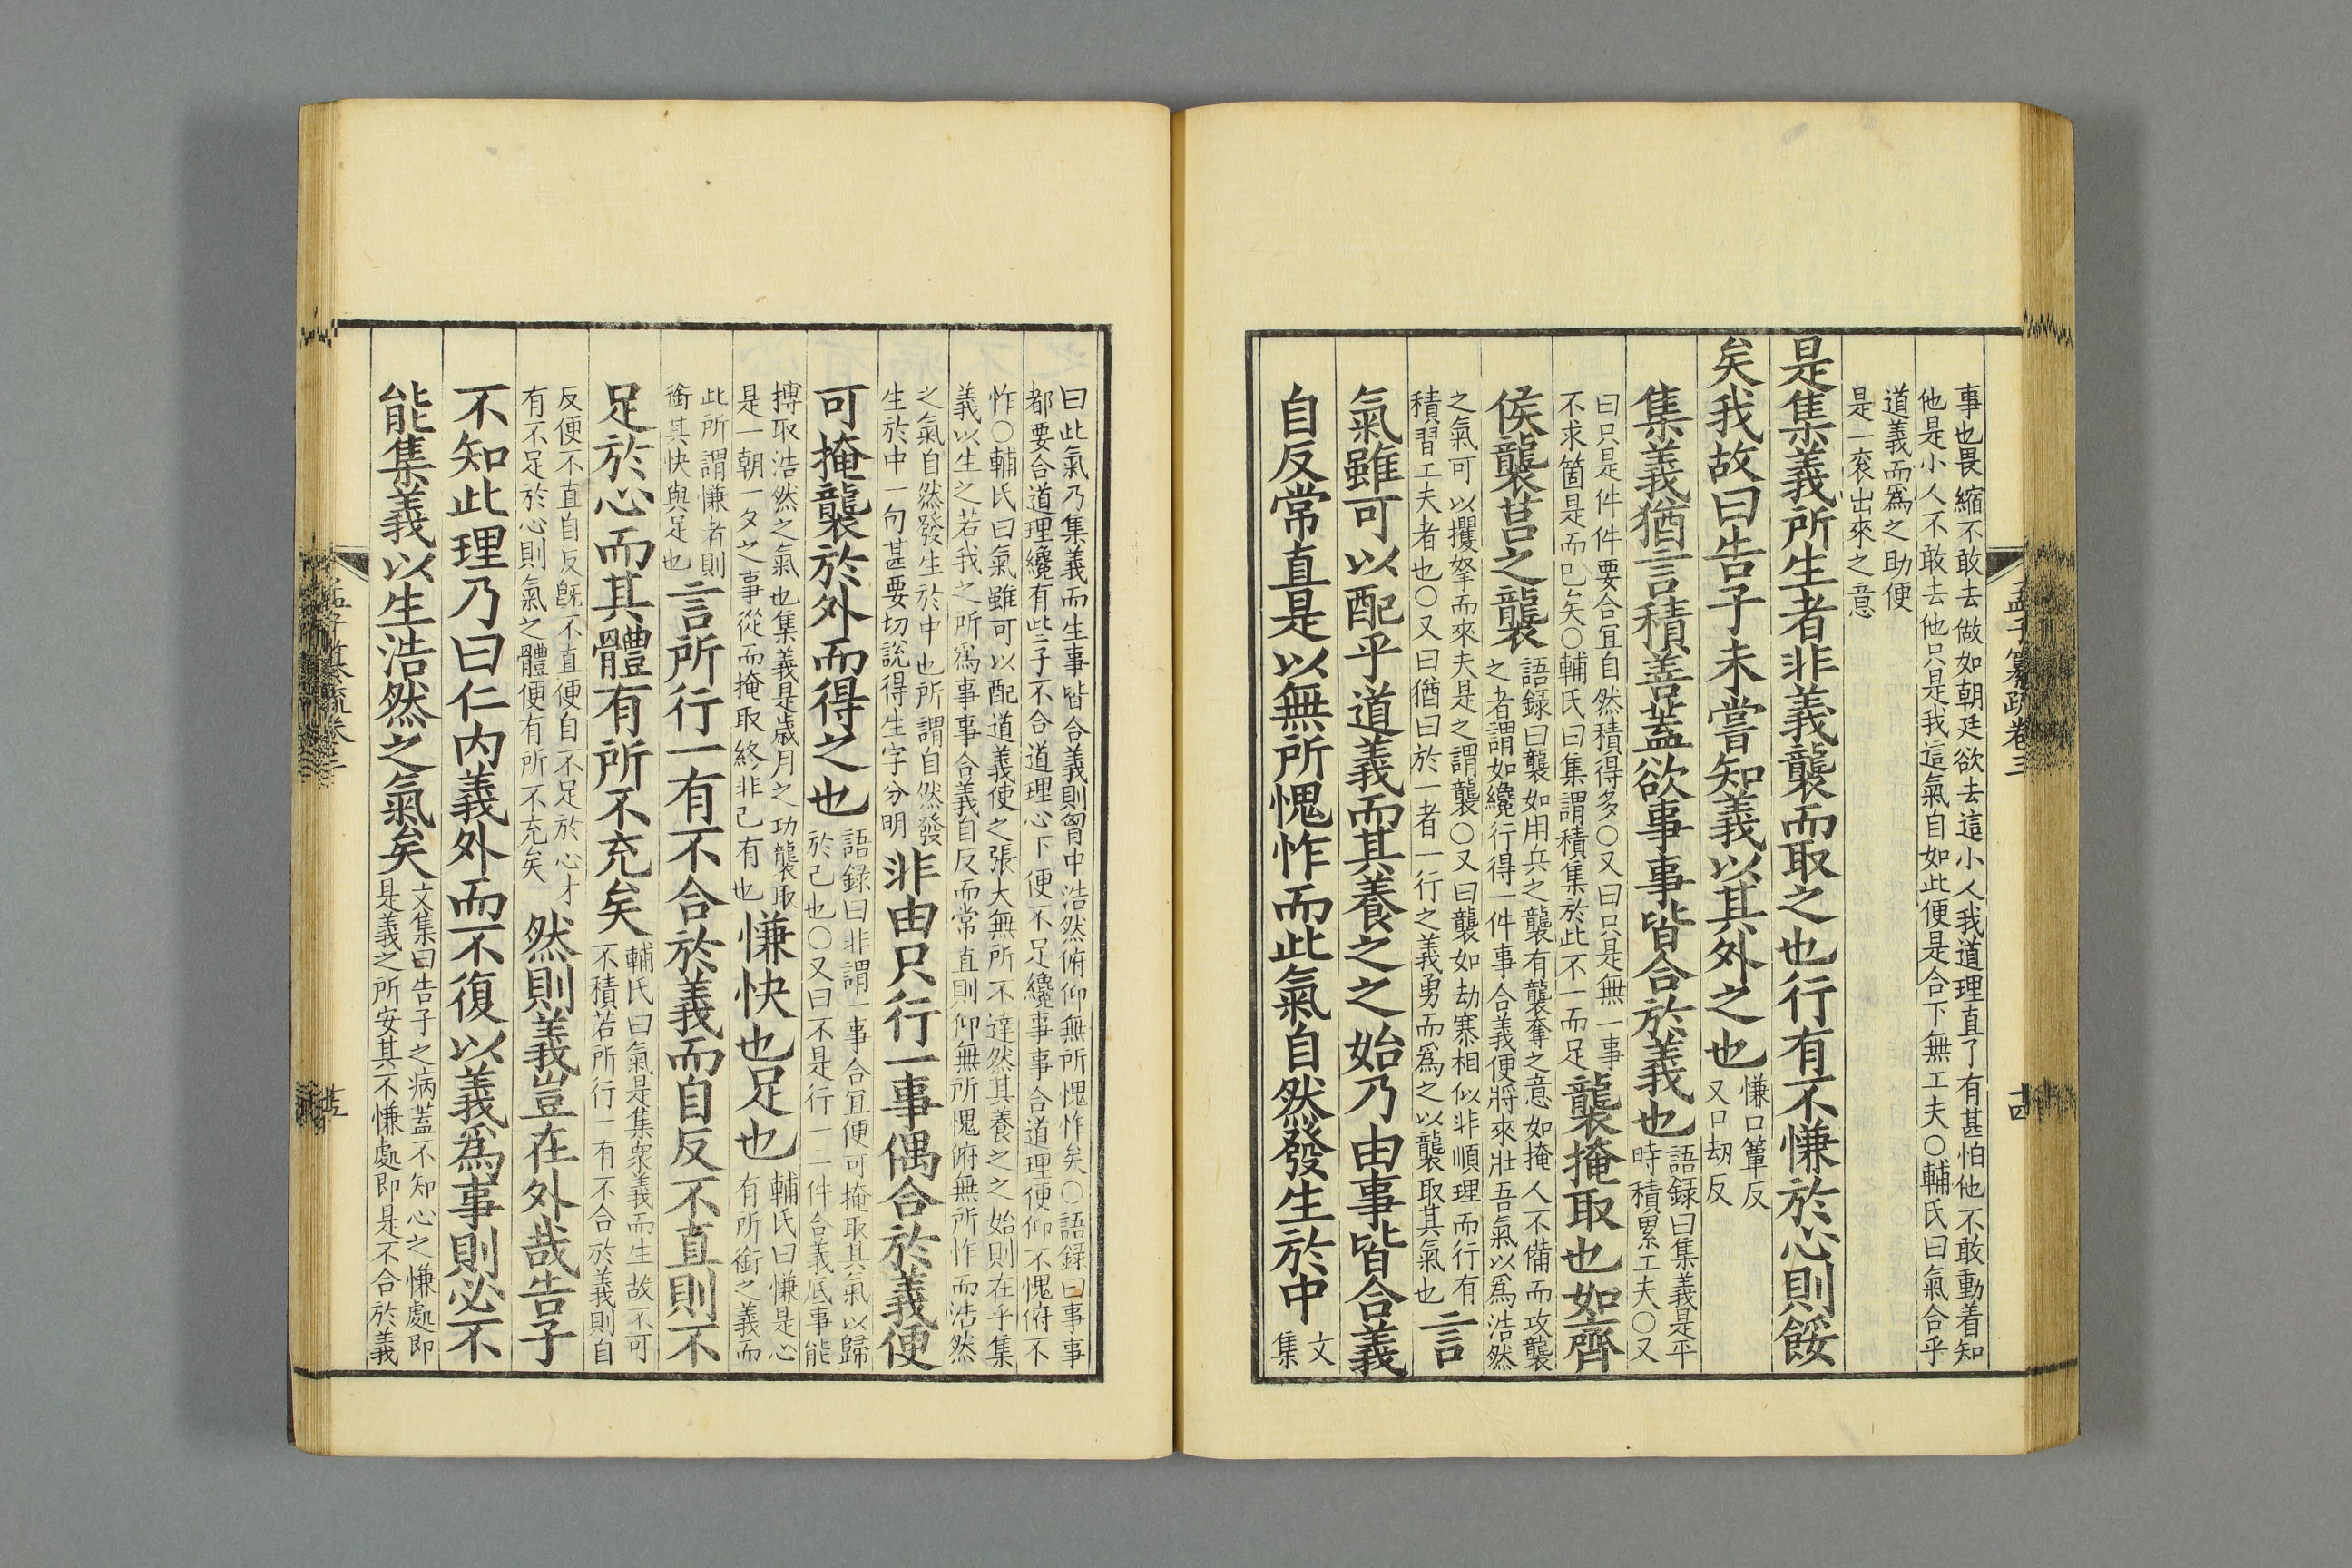 事也畏縮不敢去做如朝廷欲去這小人我道理直了有甚怕他不敢動着知
他是小人不敢去他只是我這氣自如此便是合下無工夫○輔氏曰氣合乎
道義而爲之助便
是一衮出來之意
是集義所生者非義襲而取之也行有不慊於心則餒
矣我故曰告子未嘗知義以其外之也
慊口簟反
又口劫反
集義猶言積善蓋欲事事皆合於義也
語録曰集義是平
時積累工夫○又
曰只是件件要合宜自然積得多○又曰只是無一事
不求箇是而已矣○輔氏曰集謂積集於此不一而足
襲掩取也如齊
侯襲莒之襲
語録曰襲如用兵之襲有襲奪之意如掩人不備而攻襲
之者謂如纔行得一件事合義便將來壯吾氣以爲浩然
之氣可以攫拏而來夫是之謂襲○又曰襲如劫寨相似非順理而行有
積習工夫者也○又曰猶曰於一者一行之義勇而爲之以襲取其氣也
言
氣雖可以配乎道義而其養之之始乃由事皆合義
自反常直是以無所愧怍而此氣自然發生於中
文
集
孟子纂疏卷三
十四
曰此氣乃集義而生事皆合義則胷中浩然俯仰無所愧怍矣○語録曰事事
都要合道理纔有些子不合道理心下便不足纔事事合道理便仰不愧俯不
怍○輔氏曰氣雖可以配道義使之張大無所不達然其養之之始則在乎集
義以生之若我之所爲事事合義自反而常直則仰無所愧俯無所怍而浩然
之氣自然發生於中也所謂自然發
生於中一句甚要切說得生字分明
非由只行一事偶合於義便
可掩襲於外而得之也
語録曰非謂一事合宜便可掩取其氣以歸
於己也○又曰不是行一二件合義底事能
搏取浩然之氣也集義是歲月之功襲取
是一朝一夕之事從而掩取終非己有也
慊快也足也
輔氏曰慊是心
有所銜之義而
此所謂慊者則
銜其快與足也
言所行一有不合於義而自反不直則不
足於心而其體有所不充矣
輔氏曰氣是集衆義而生故不可
不積若所行一有不合於義則自
反便不直自反旣不直便自不足於心才
有不足於心則氣之體便有所不充矣
然則義豈在外哉告子
不知此理乃曰仁内義外而不復以義爲事則必不
能集義以生浩然之氣矣
文集曰告子之病蓋不知心之慊處即
是義之所安其不慊處即是不合於義
孟子纂疏卷三